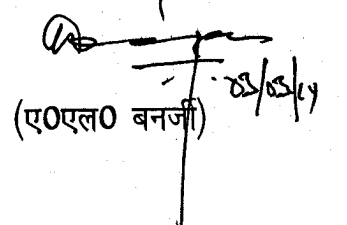 03/03/14
(ए0एल0 बनर्जी)